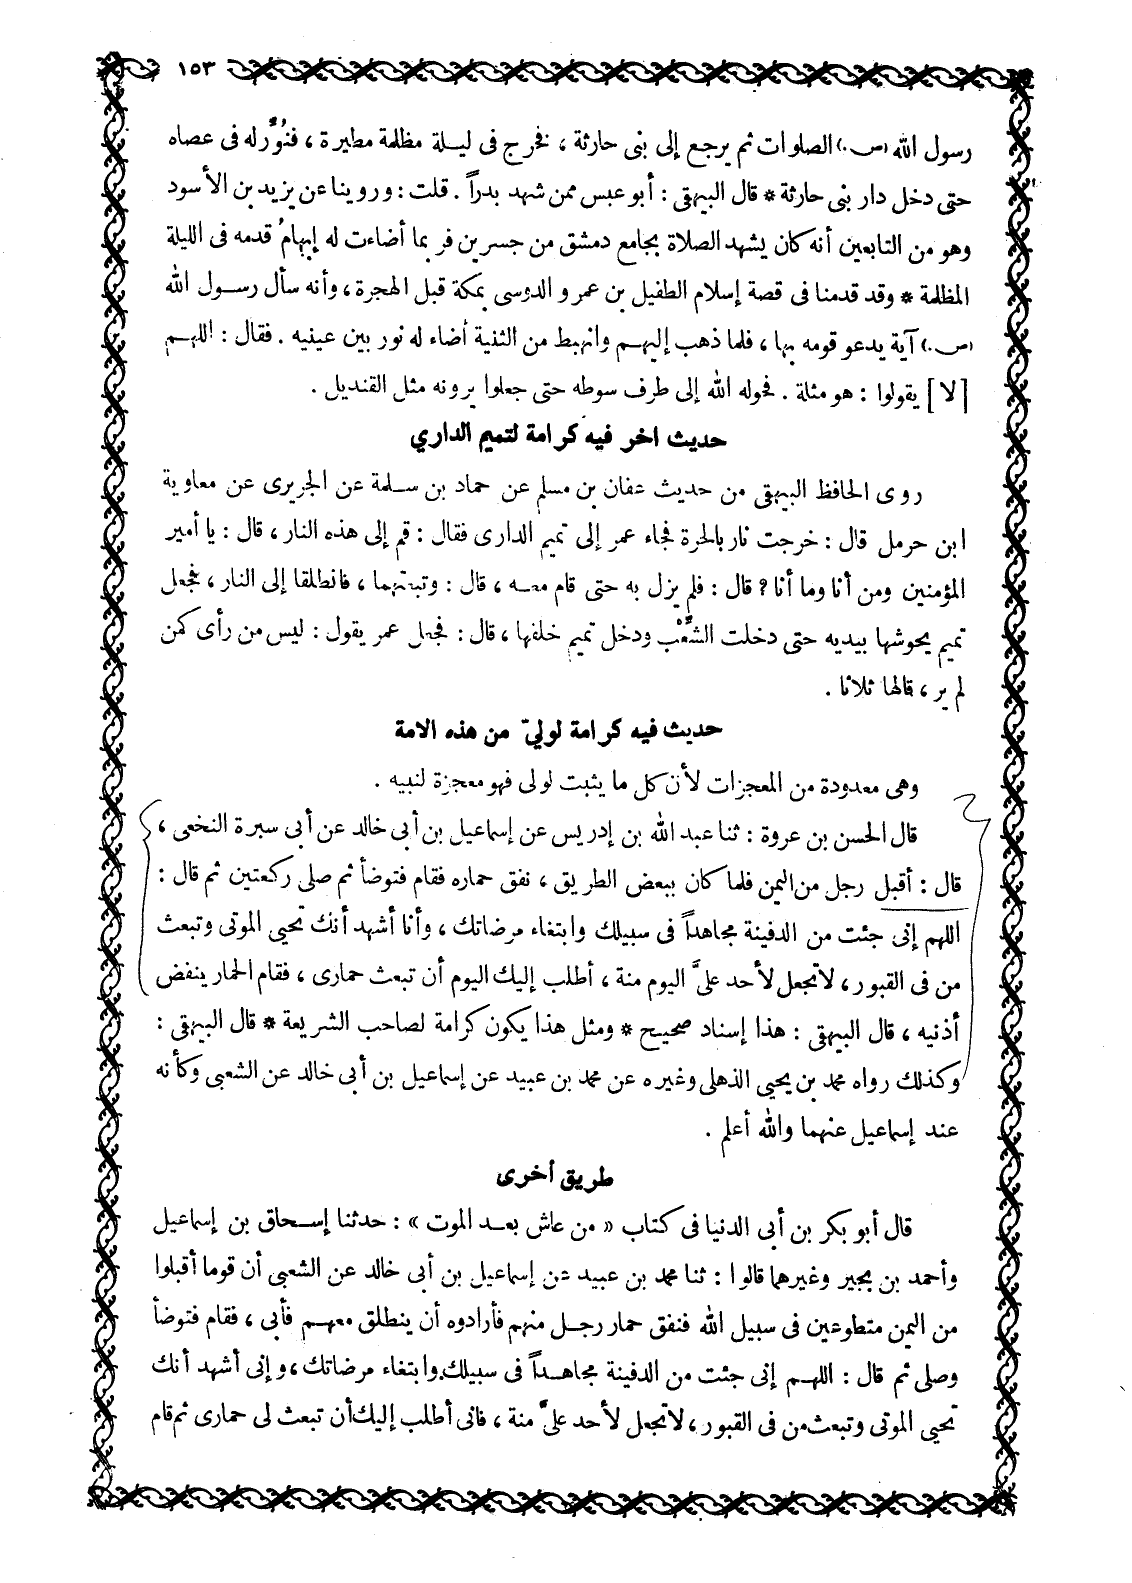 ١٥٣
رسول الله (ص.) الصلوات ثم يرجع إلى بنى حارثة ، فخرج فى ليلة مظلمة مطيرة ، فنُوِّر له فى عصاه
حتى دخل دار بنى حارثة * قال البيهقى : أبو عبس ممن شهد بدراً . قلت : وروينا عن يزيد بن الأسود
وهو من التابعين أنه كان يشهد الصلاة بجامع دمشق من جسرين فر بما أضاءت له إبهامُ قدمه فى الليلة
المظلمة * وقد قدمنا فى قصة إسلام الطفيل بن عمرو الدوسى بمكة قبل الهجرة ، وأنه سأل رسول الله
(ص.) آية يدعو قومه بها ، فلما ذهب إليهم وانهبط من الثنية أضاء له نور بين عينيه . فقال : اللهم
[ لا ] يقولوا : هو مثلة . فحوله الله إلى طرف سوطه حتى جعلوا يرونه مثل القنديل .
حديث اخر فيه كرامة لتميم الداري
روى الحافظ البيهقى من حديث عفان بن مسلم عن حماد بن سلمة عن الجريرى عن معاوية
ابن حرمل قال : خرجت نار بالحرة فجاء عمر إلى تميم الدارى فقال : قم إلى هذه النار ، قال : يا أمير
المؤمنين ومن أنا وما أنا ? قال : فلم يزل به حتى قام معه ، قال : وتبعتهما ، فانطلقا إلى النار ، فجعل
تميم يحوشها بيديه حتى دخلت الشِّعْب ودخل تميم خلفها ، قال : فجعل عمر يقول : ليس من رأى كمن
لم ير ، قالها ثلاثا .
حديث فيه كرامة لوليّ من هذه الامة
وهى معدودة من المعجزات لأن كل ما يثبت لولى فهو معجزة لنبيه .
قال الحسن بن عروة : ثنا عبد الله بن إدريس عن إسماعيل بن أبى خالد عن أبى سبرة النخعى ،
قال : أقبل رجل من اليمن فلما كان ببعض الطريق ، نفق حماره فقام فتوضأ ثم صلى ركعتين ثم قال :
اللهم إنى جئت من الدفينة مجاهداً فى سبيلك وابتغاء مرضاتك ، وأنا أشهد أنك تحيى الموتى وتبعث
من فى القبور ، لا تجعل لأحد علىَّ اليوم منة ، أطلب إليك اليوم أن تبعث حمارى ، فقام الحمار ينفض
أذنيه ، قال البيهقى : هذا إسناد صحيح * ومثل هذا يكون كرامة لصاحب الشريعة * قال البيهقى :
وكذلك رواه محمد بن يحيى الذهلى وغيره عن محمد بن عبيد عن إسماعيل بن أبى خالد عن الشعبى وكأنه
عند إسماعيل عنهما والله أعلم .
طريق أخرى
قال أبو بكر بن أبى الدنيا فى كتاب « من عاش بعد الموت » : حدثنا إسحاق بن إسماعيل
وأحمد بن بجير وغيرهما قالوا : ثنا محمد بن عبيد عن إسماعيل بن أبى خالد عن الشعبى أن قوما أقبلوا
من اليمن متطوعين فى سبيل الله فنفق حمار رجل منهم فأرادوه أن ينطلق معهم فأبى ، فقام فتوضأ
وصلى ثم قال : اللهم إنى جئت من الدفينة مجاهداً فى سبيلك وابتغاء مرضاتك ، وإنى أشهد أنك
تحيى الموتى وتبعث من فى القبور ، لا تجعل لأحد علىَّ منة ، فانى أطلب إليك أن تبعث لى حمارى ثم قام